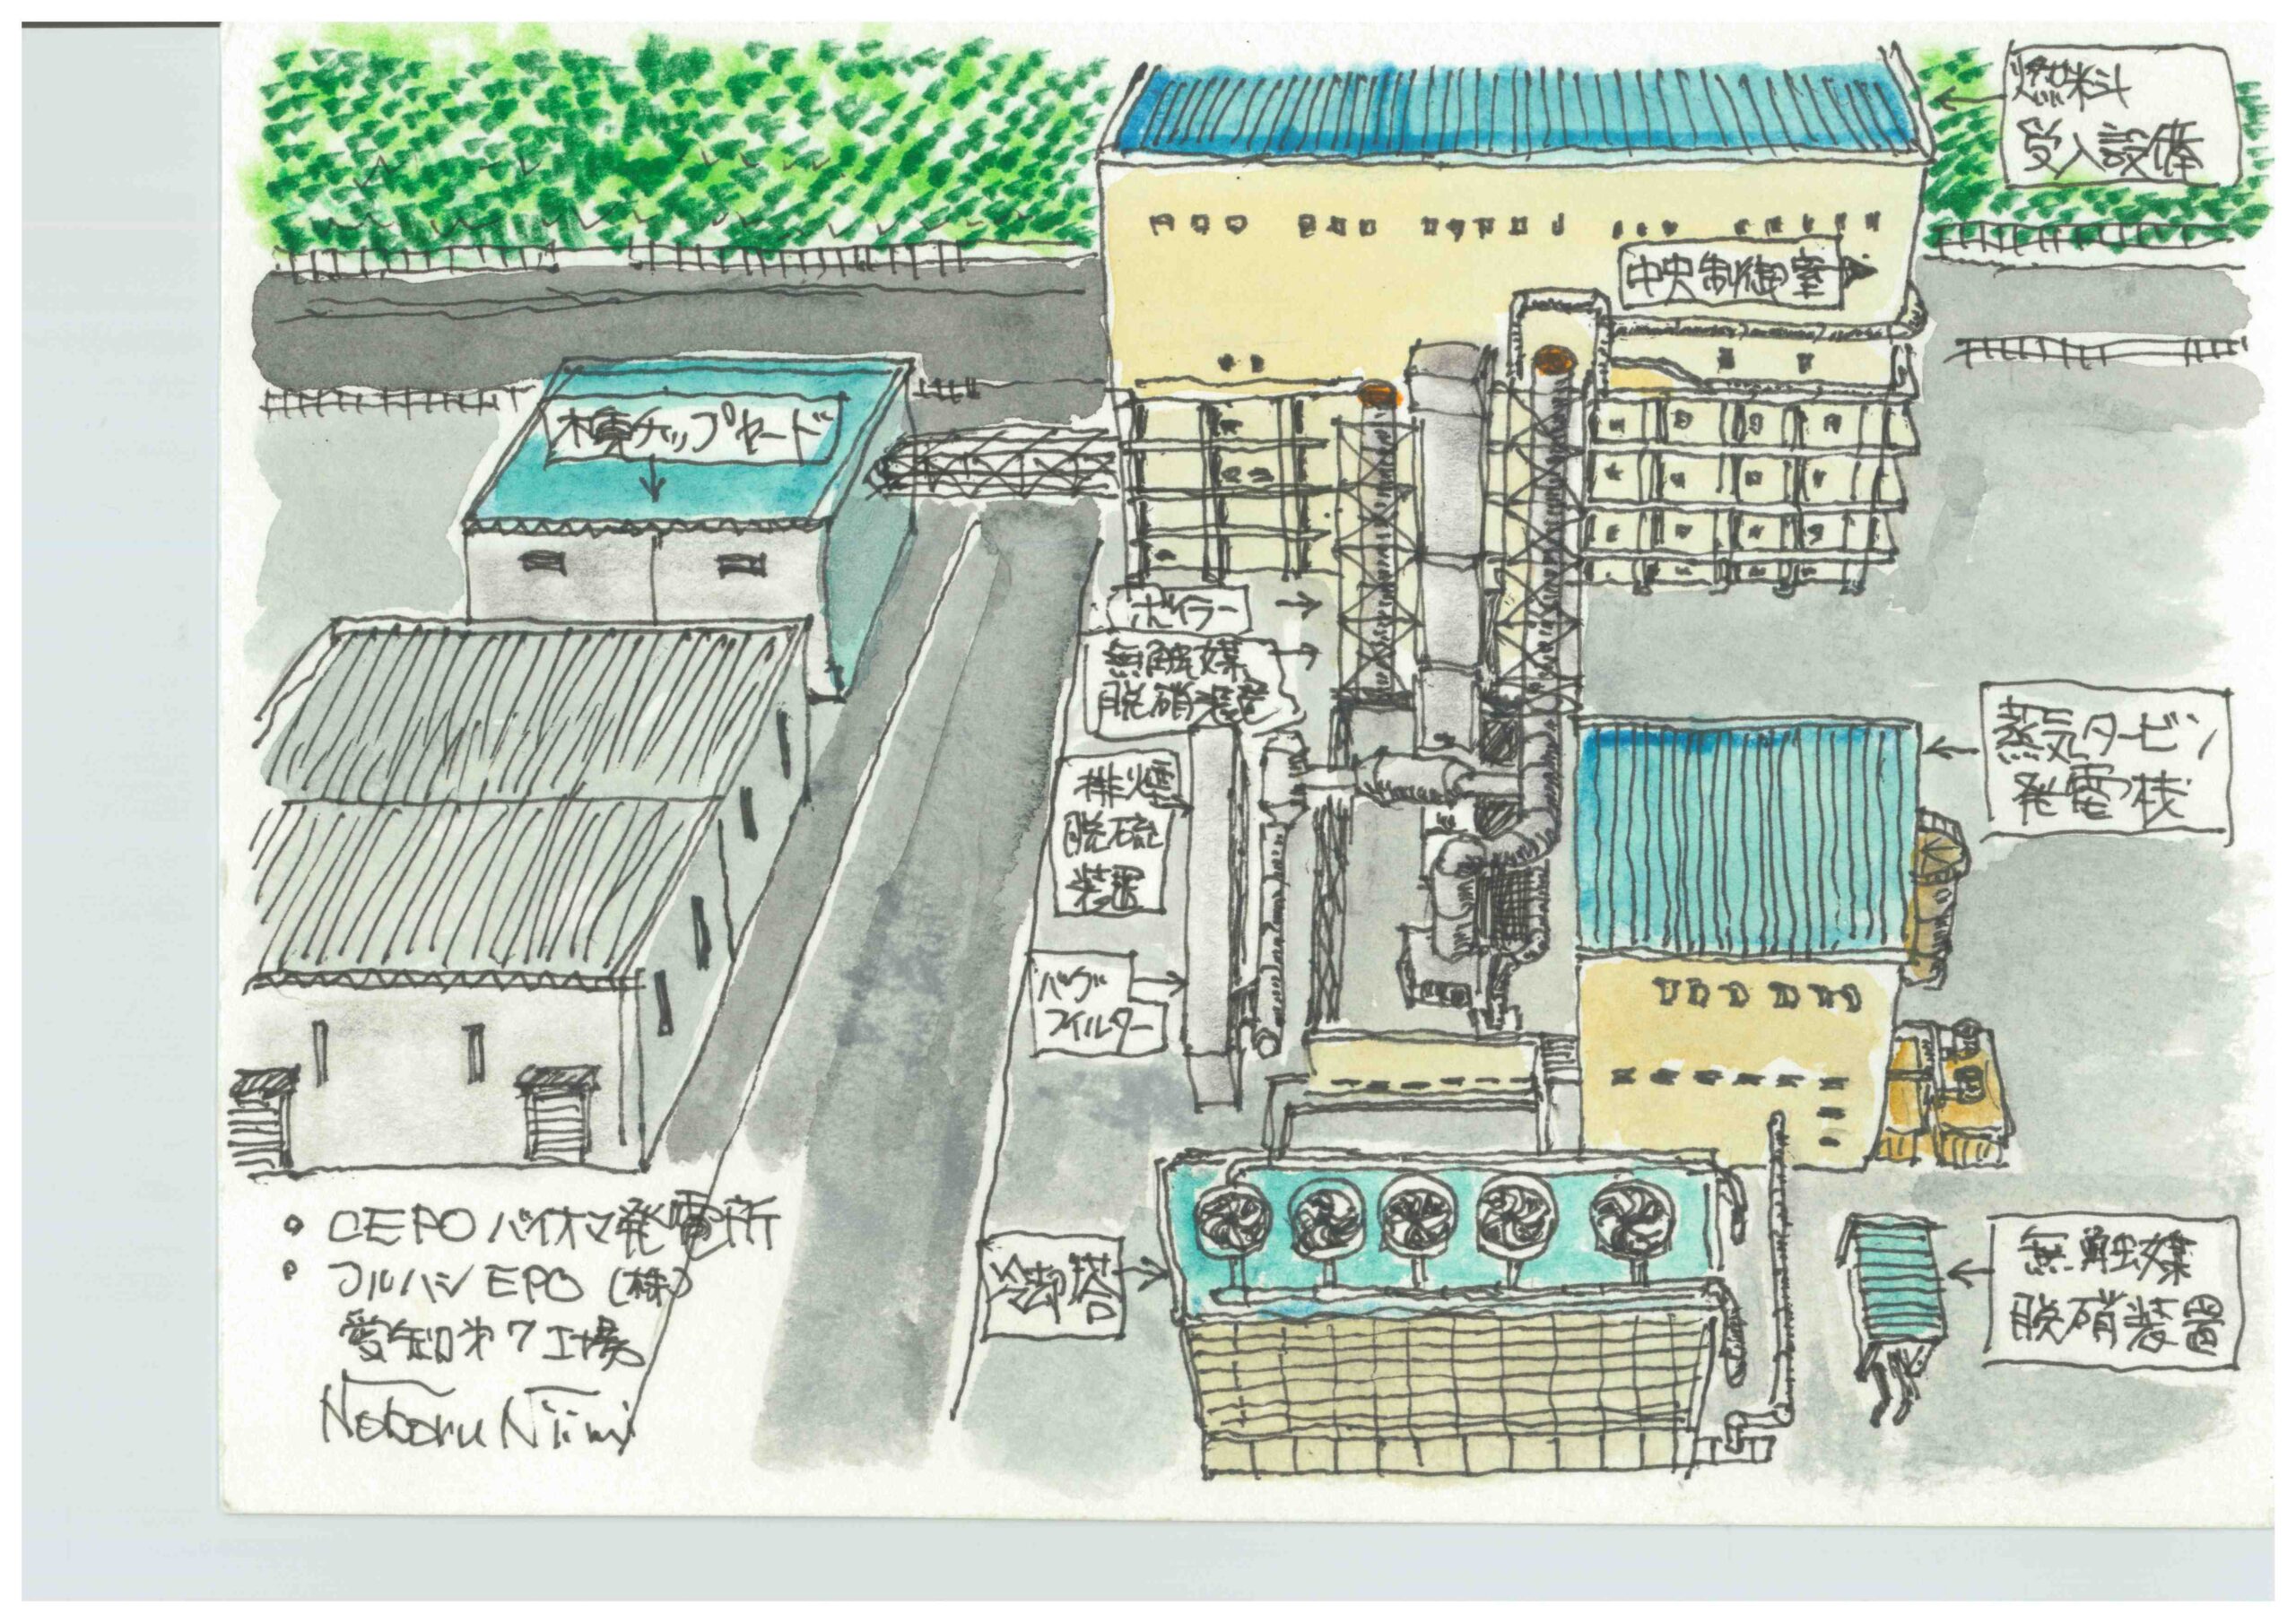 燃料
受入設備
中央制御室
木東チップヤード
ボイラー
無触媒
脱硝装置
排煙
脱硫
装置
バグ
フィルター
蒸気タービン
発電機
冷却塔
無触媒
脱硝装置
• CEPO バイオマ発電所
• フルハシ EPO (株)
愛知第7工場
Noboru Niimi